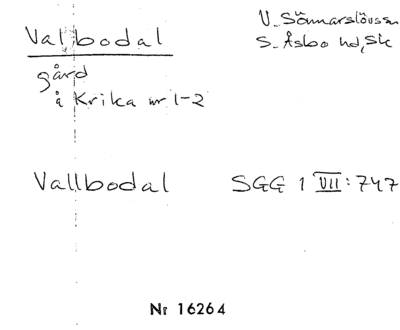 Valbodal
V. Sönnarslövssn
S. Åsbo hd, Sk
gård
å Krika nr 1-2
Vallbodal SGG 1 VII:747
Nr 16264